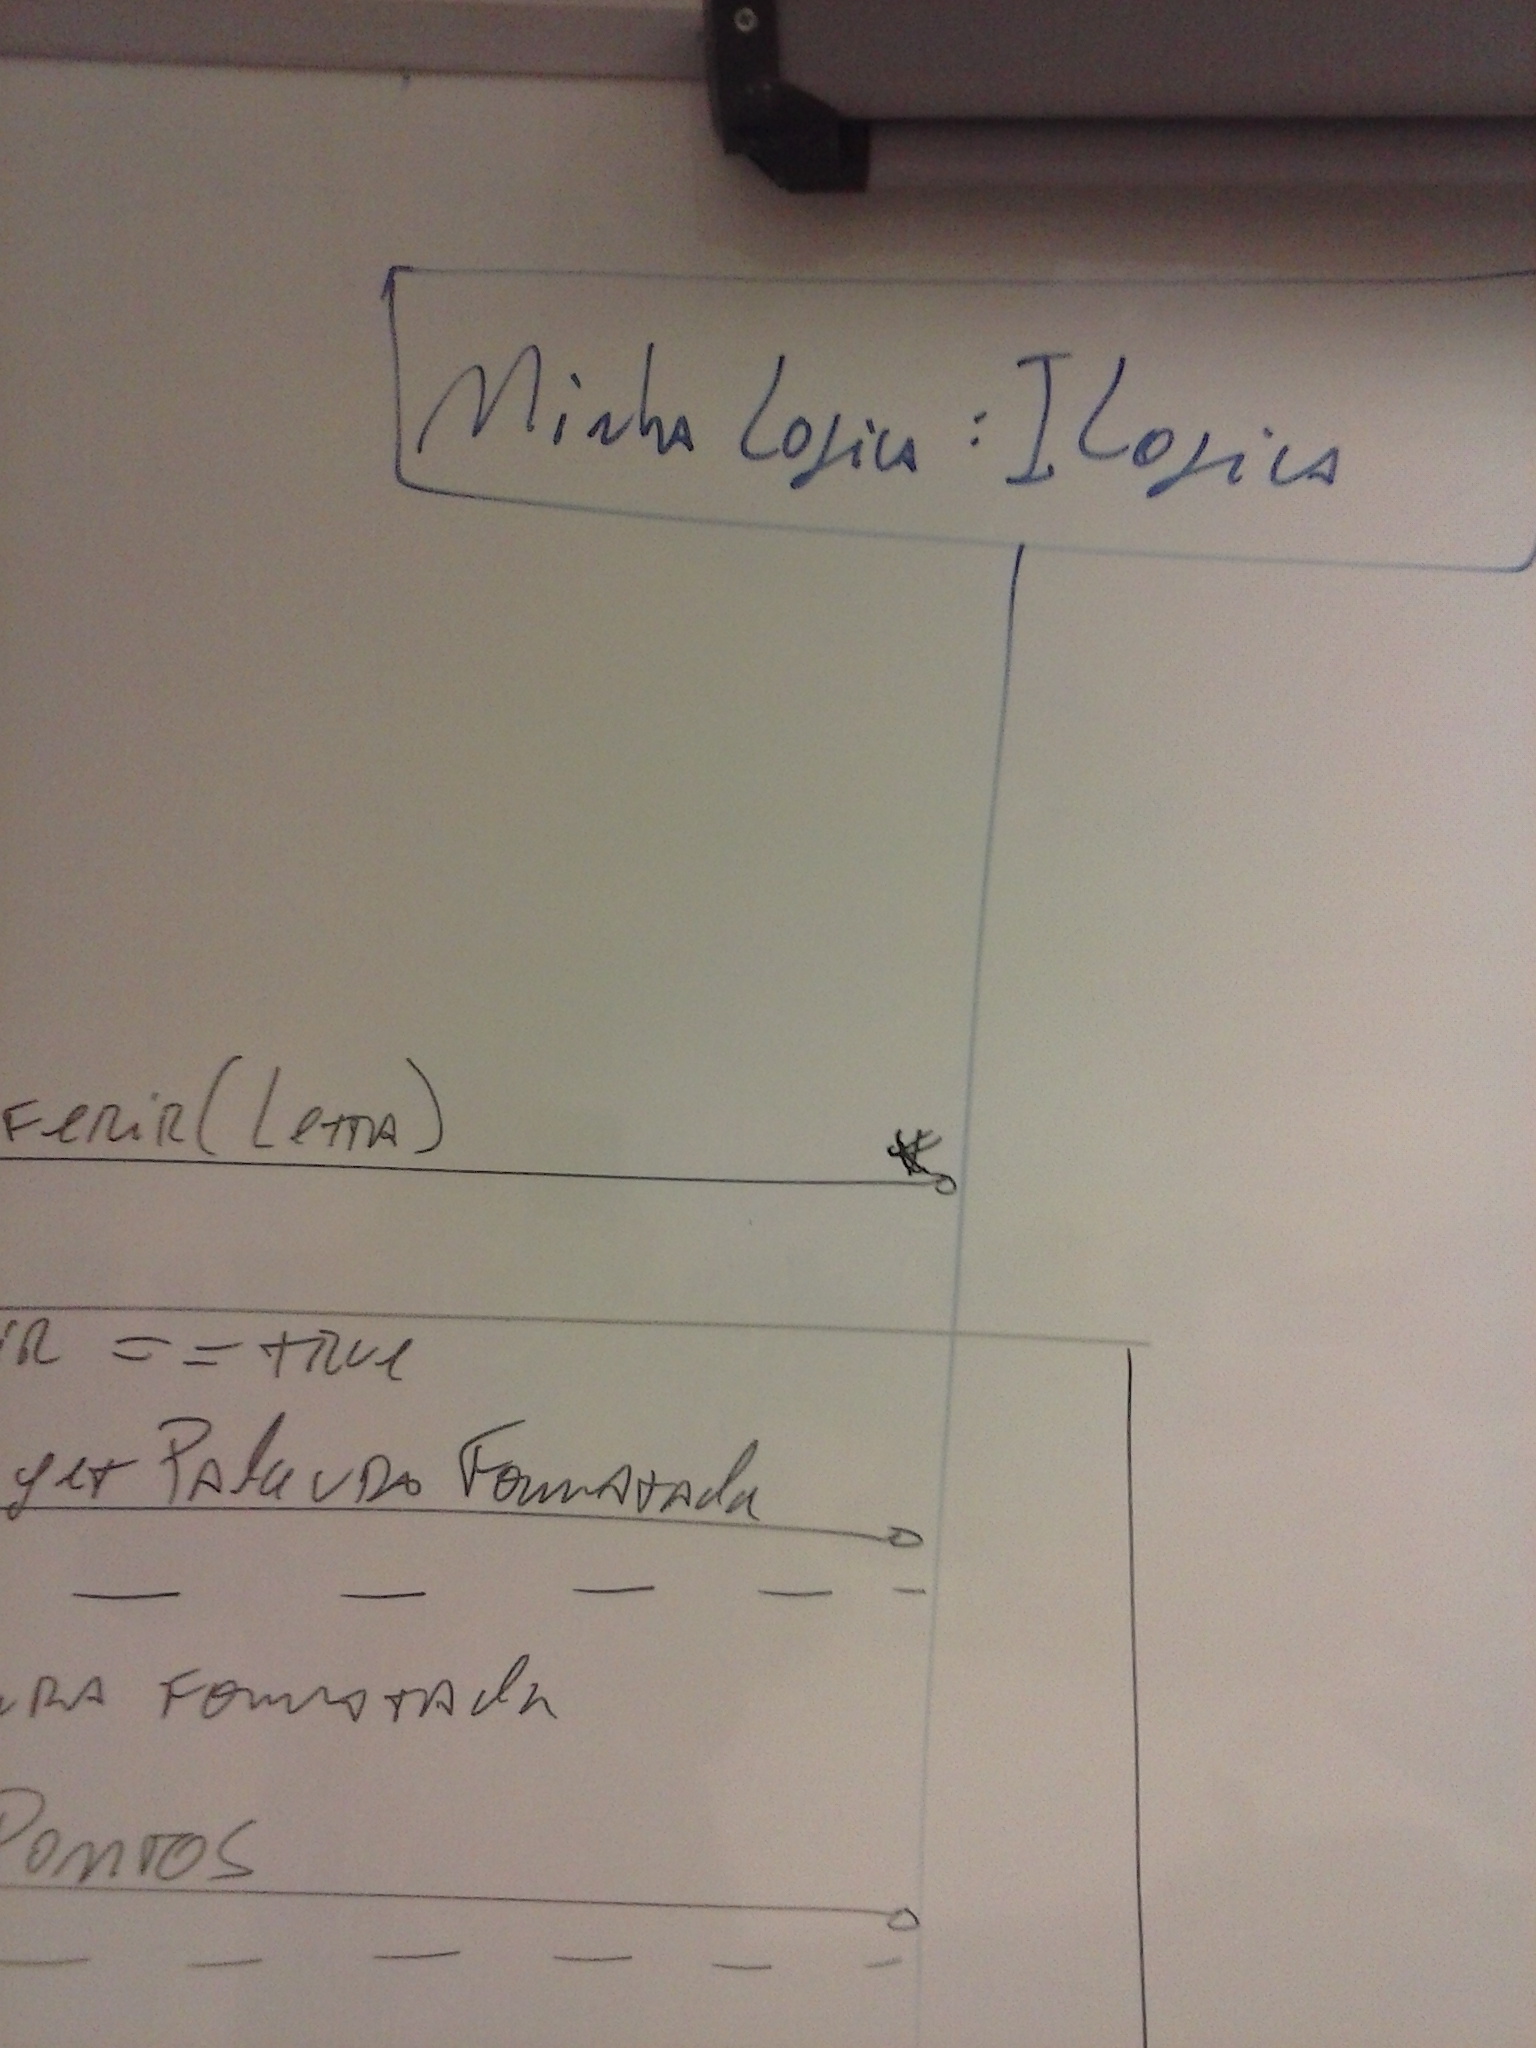 Minha Logica : ILogica
ferir(Letra)
iR == true
get Palavra Formatada
Formatada
Pontos